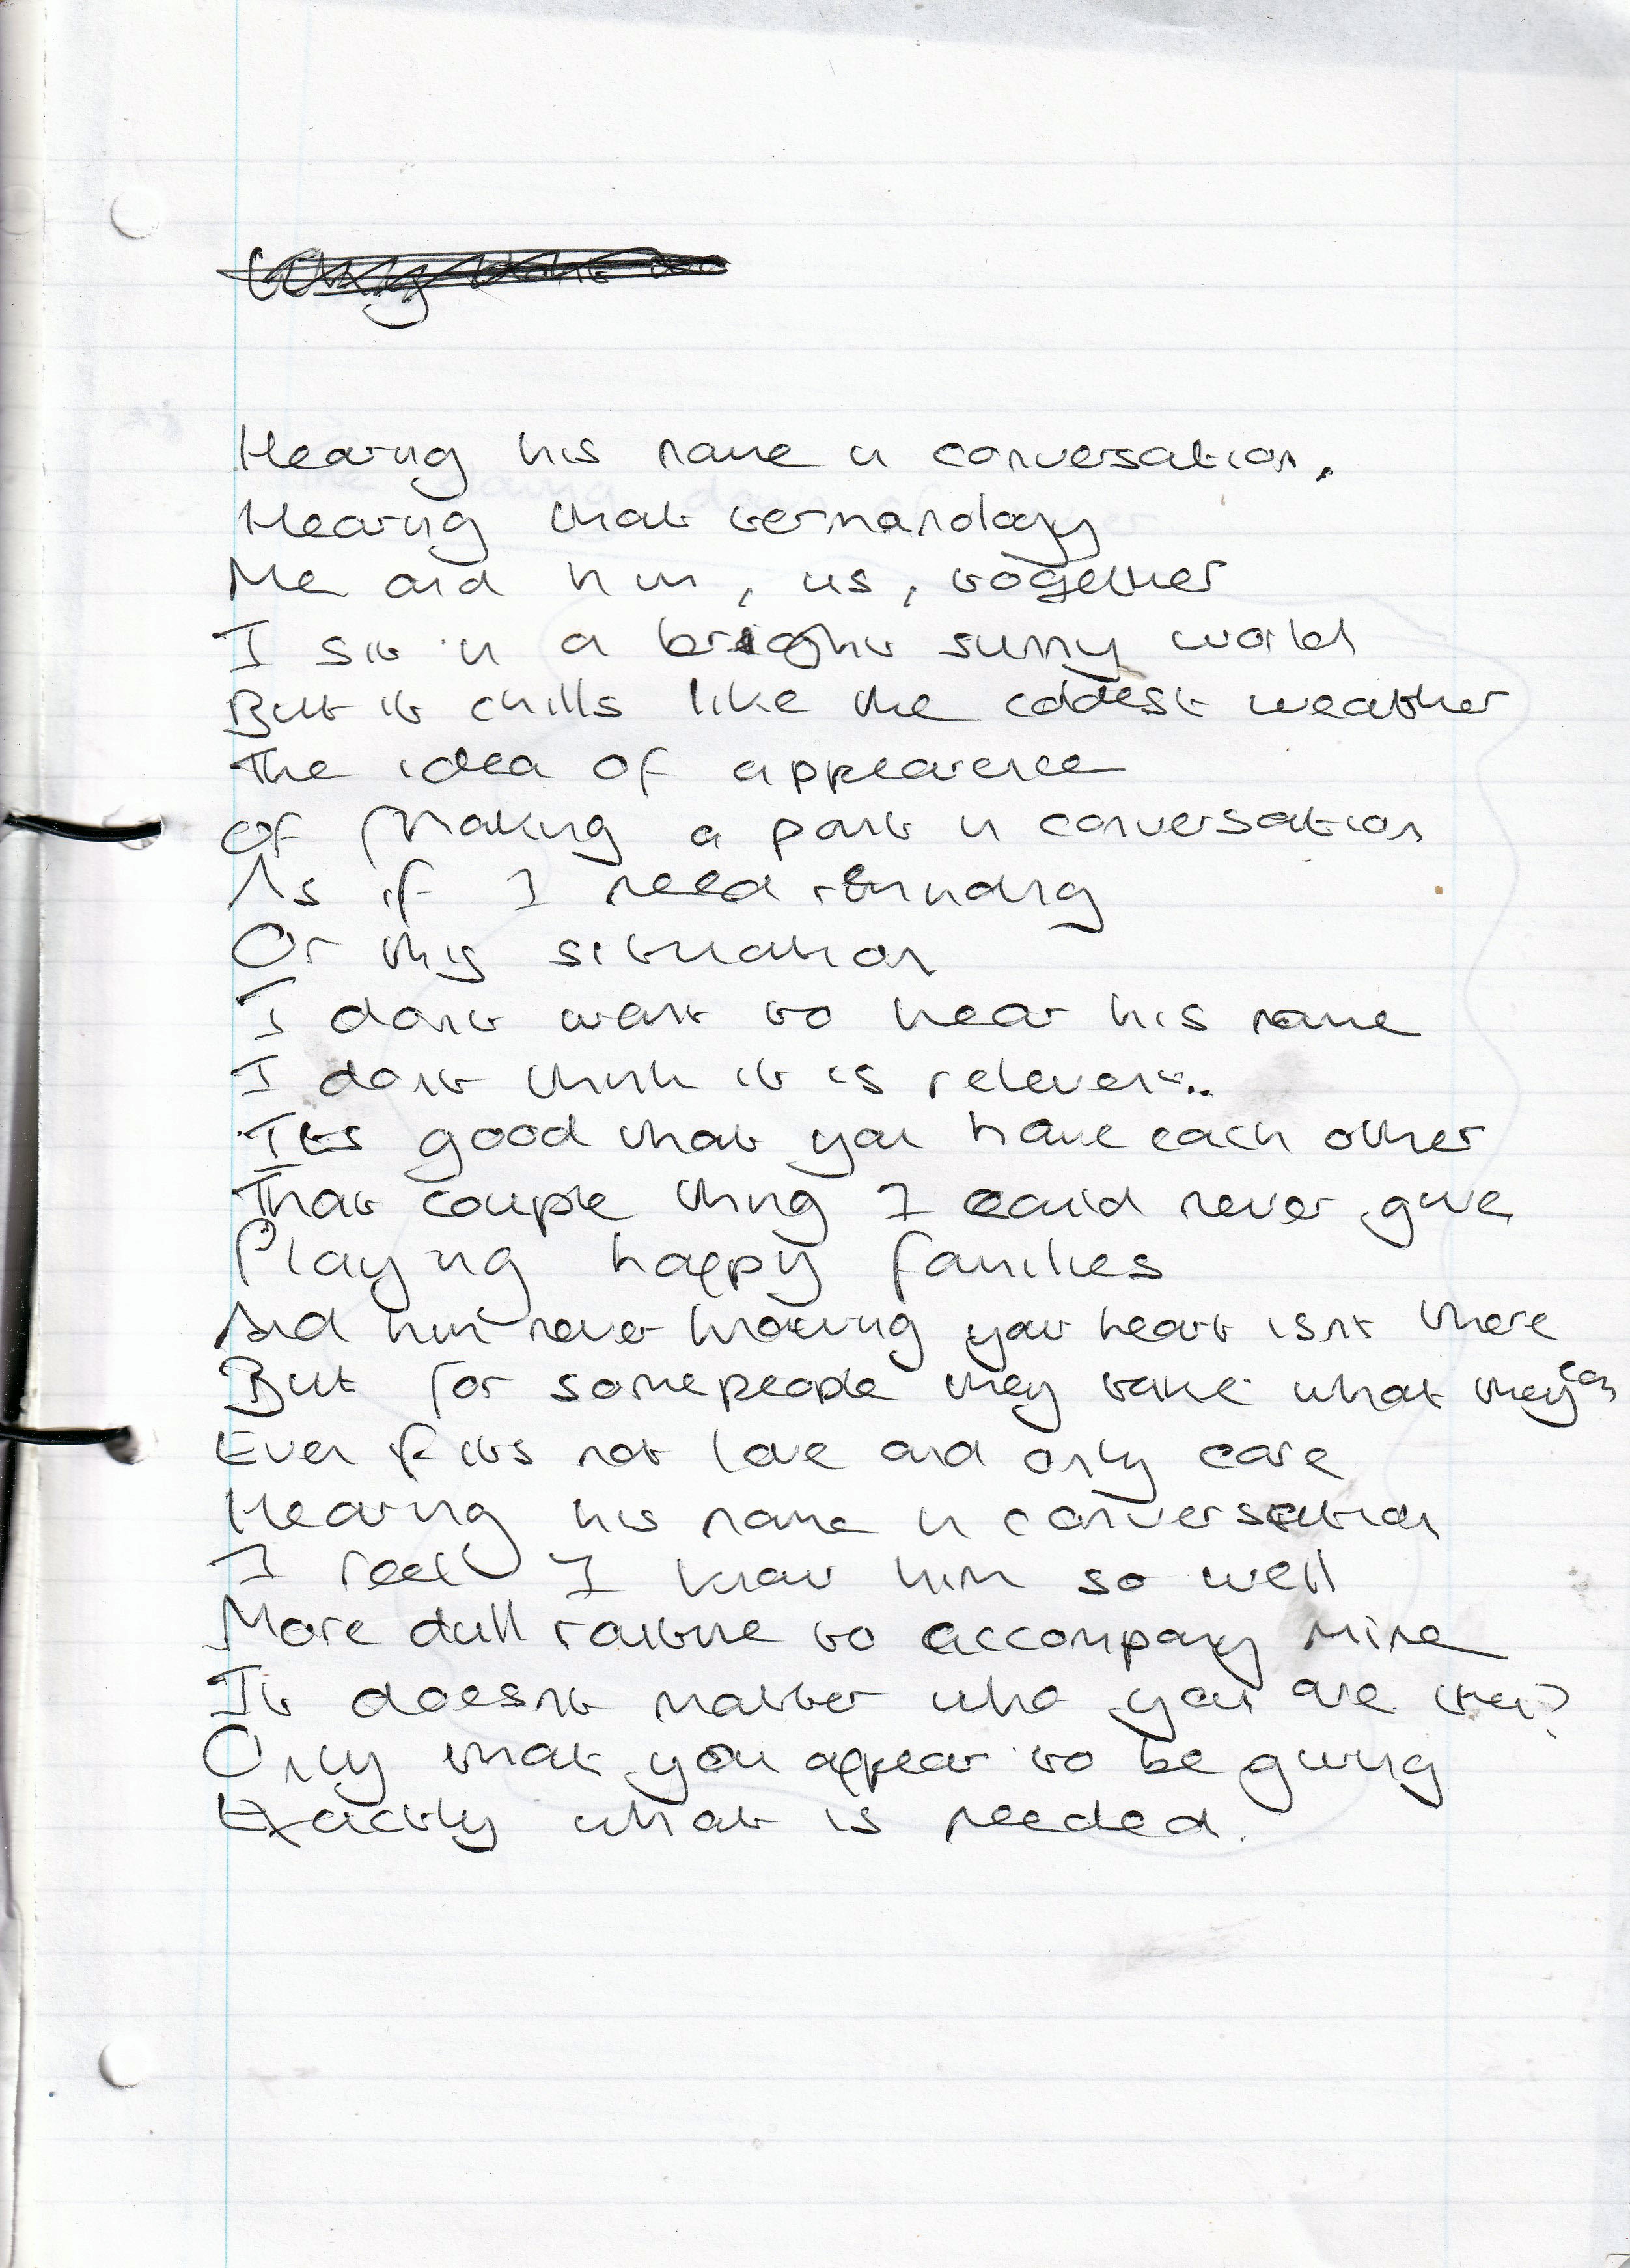 Hearing his name in conversation,
Hearing that termanology
Me and him, us, together
I sit in a bright sunny world
But it chills like the coldest weather
The idea of appearence
Of Making a point in conversation
As if I need reminding
Or this situation
I dont want to hear his name
I dont think it is relevent..
Its good that you have each other
That couple thing I could never give
Playing happy families
And him never knowing your heart isnt there
But for some people they take what they can
Even if its not love and only care
Hearing his name in conversation
I feel I know him so well
More dull routine to accompany mine
It doesnt matter who you are then?
Only that you appear to be giving
Exactly what is needed.